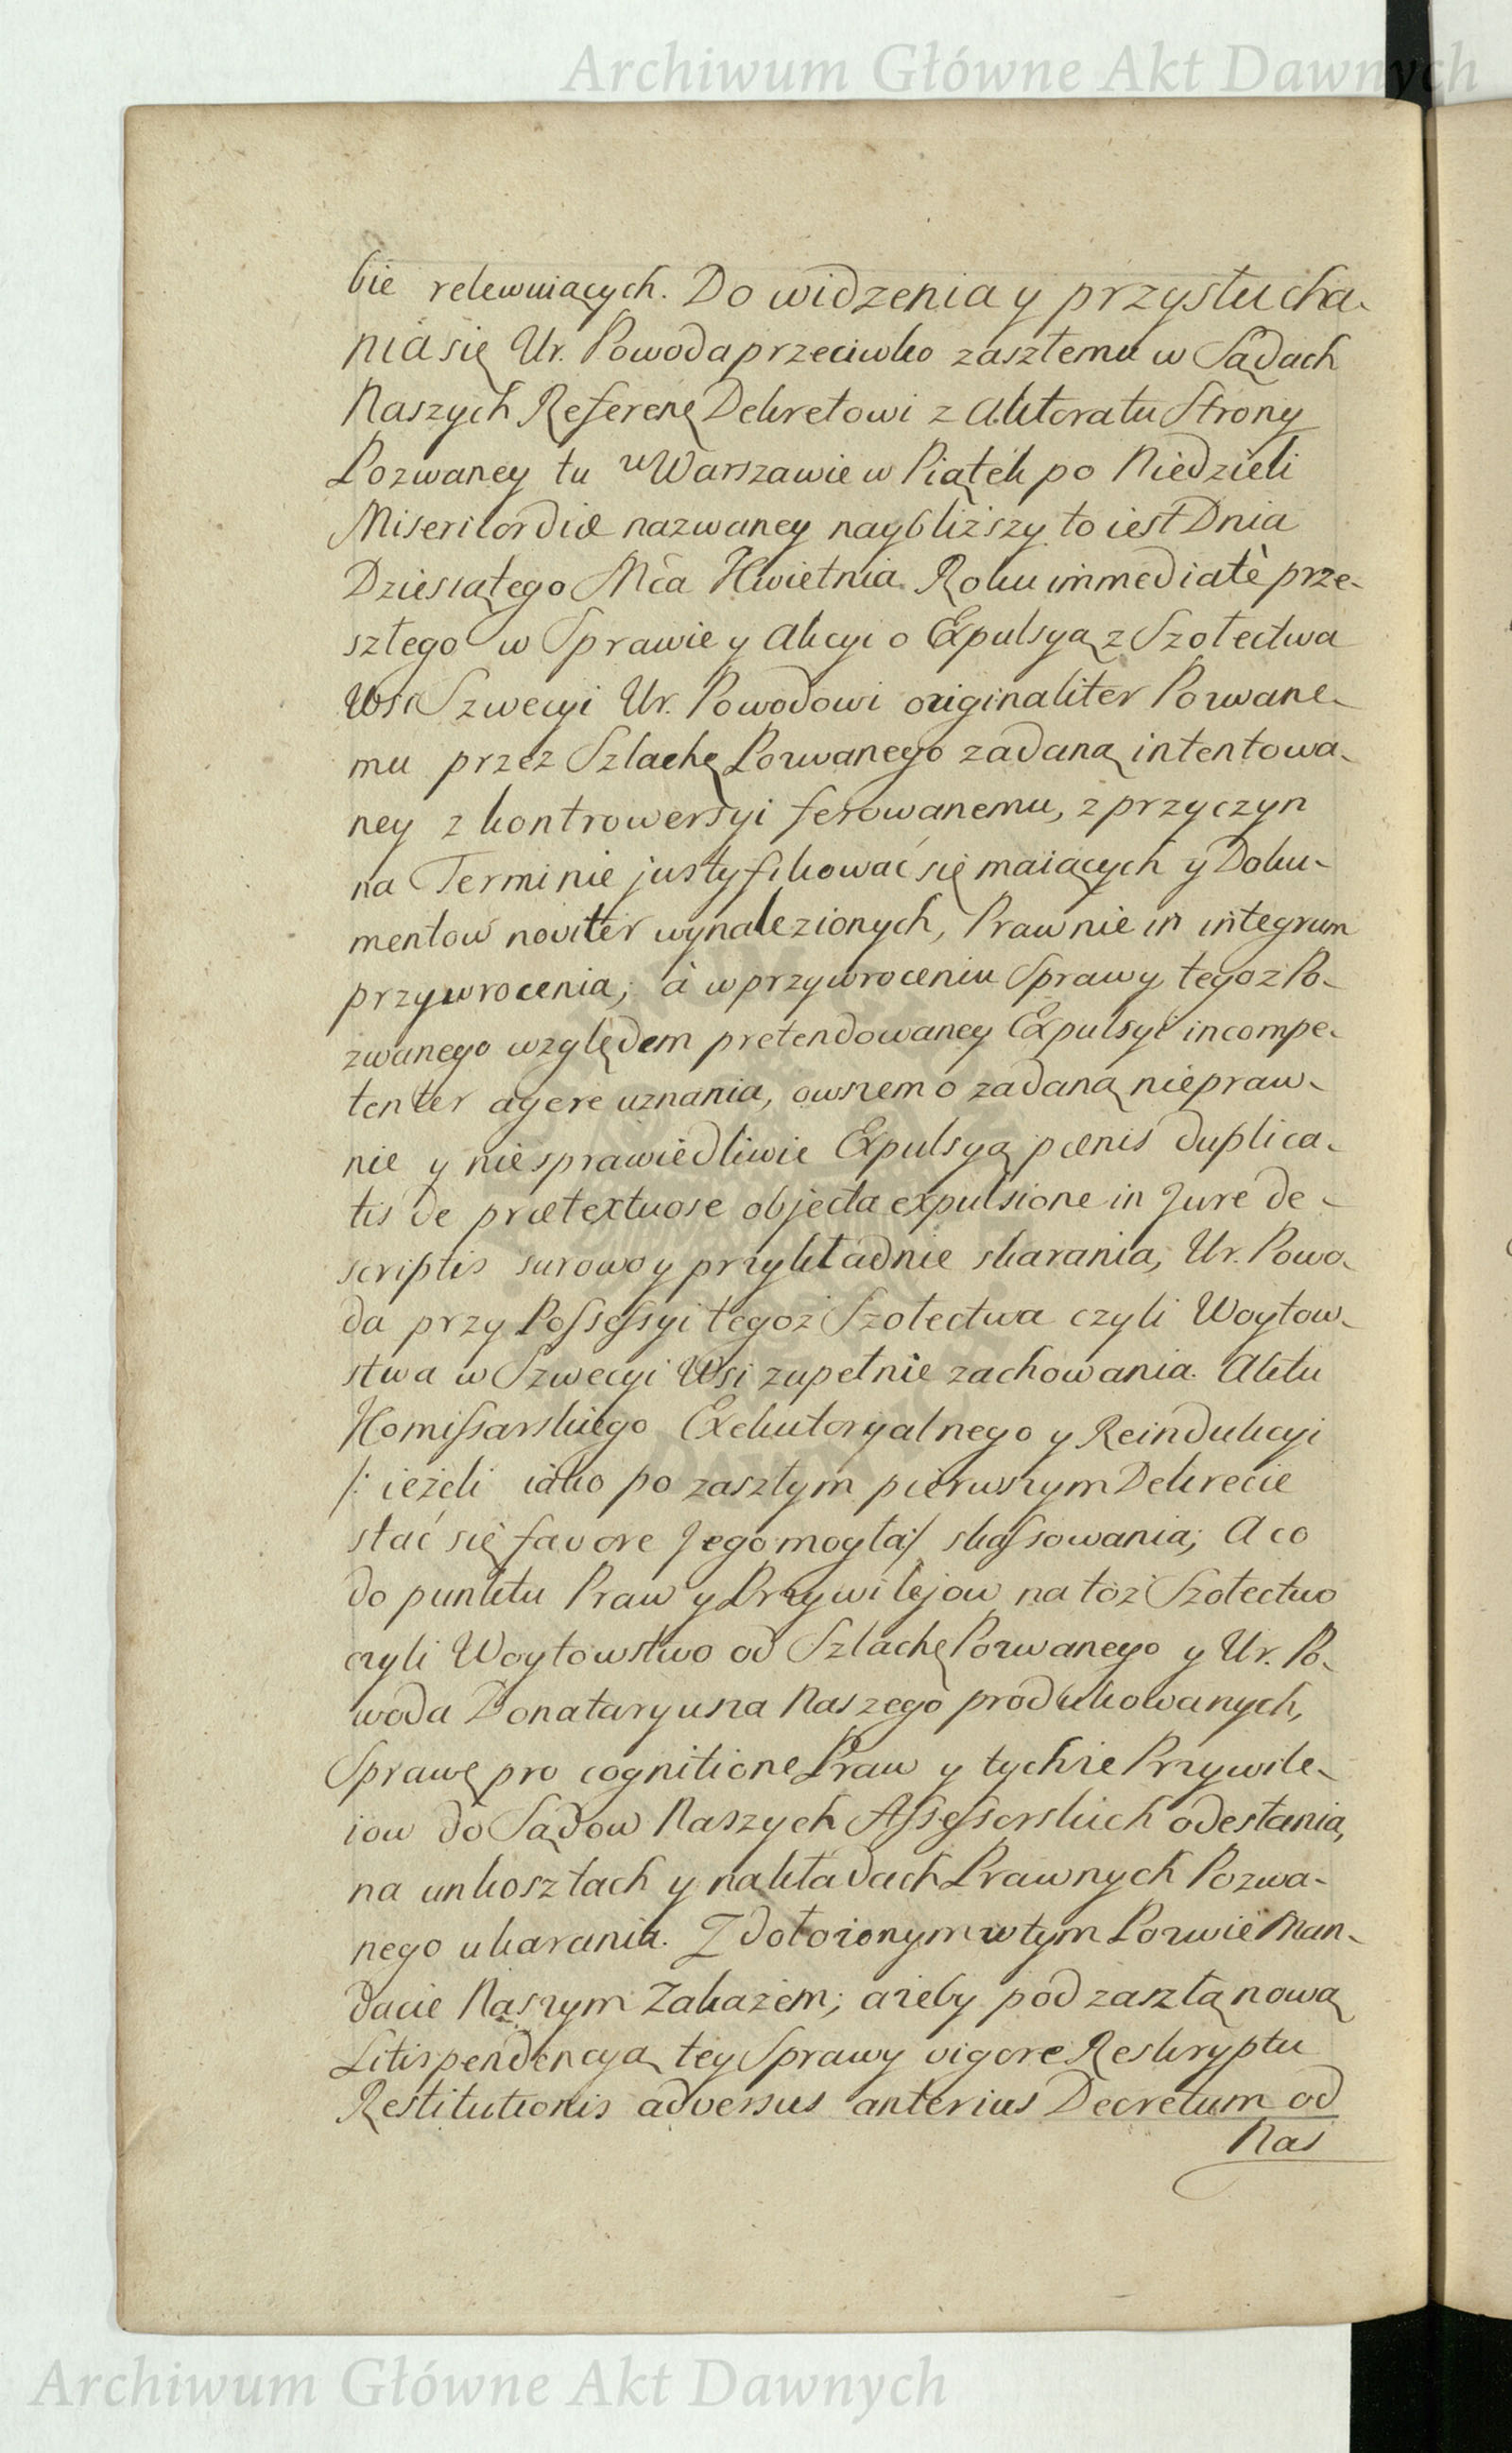 Archiwum Główne Akt Dawnych
bie relewuiących. Do widzenia y przysłucha-
nia się Ur. Powoda przeciwko zaszłemu w Sądach
Naszych Referen̄ Dekretowi z Aktoratu Strony
Pozwaney tu w Warszawie w Piątek po Niedzieli
Misericordiæ nazwaney naybliższy to iest Dnia
Dziesiątego Mca Kwietnia Roku immediatè prze-
szłego w Sprawie y Akcyi o Expulsyą z Szołectwa
Wsi Szwecyi Ur. Powodowi originaliter Pozwane-
mu przez Szlachę Pozwanego zadaną intentowa-
ney z kontrowersyi ferowanemu, z przyczyn
na Terminie justyfikować się maiących y Doku-
mentow noviter wynalezionych, Prawnie in integrum
przywrocenia; à w przywroceniu Sprawy tegoż Po-
zwanego względem pretendowaney Expulsyi incompe-
tenter agere uznania, owszem o zadaną niepraw-
nie y niesprawiedliwie Expulsyą pœnis duplica-
tis de prætextuose objecta expulsione in Jure de-
scriptis surowo y przykładnie skarania, Ur. Powo-
da przy Possessyi tegoż Szołectwa czyli Woytow-
stwa w Szwecyi Wsi zupełnie zachowania. Aktu
Komissarskiego Exekutoryalnego y Reindukcyi
/: ieżeli iako po zaszłym pierwszym Dekrecie
stać się favore Jego mogła :/ skassowania; A co
do punktu Praw y Przywilejow na toż Szołectwo
czyli Woytowstwo od Szlachę Pozwanego y Ur. Po-
woda Donataryusza Naszego produkowanych,
Sprawę pro cognitione Praw y tychże Przywile-
iow do Sądow Naszych Assessorskich odesłania,
na unkosztach y nakładach Prawnych Pozwa-
nego ukarania. Z dołożonym w tym Pozwie Man-
dacie Naszym Zakazem; ażeby pod zaszłą nową
Litispendencyą tey Sprawy vigore Reskryptu
Restitutionis adversus anterius Decretum od
Nas
Archiwum Główne Akt Dawnych